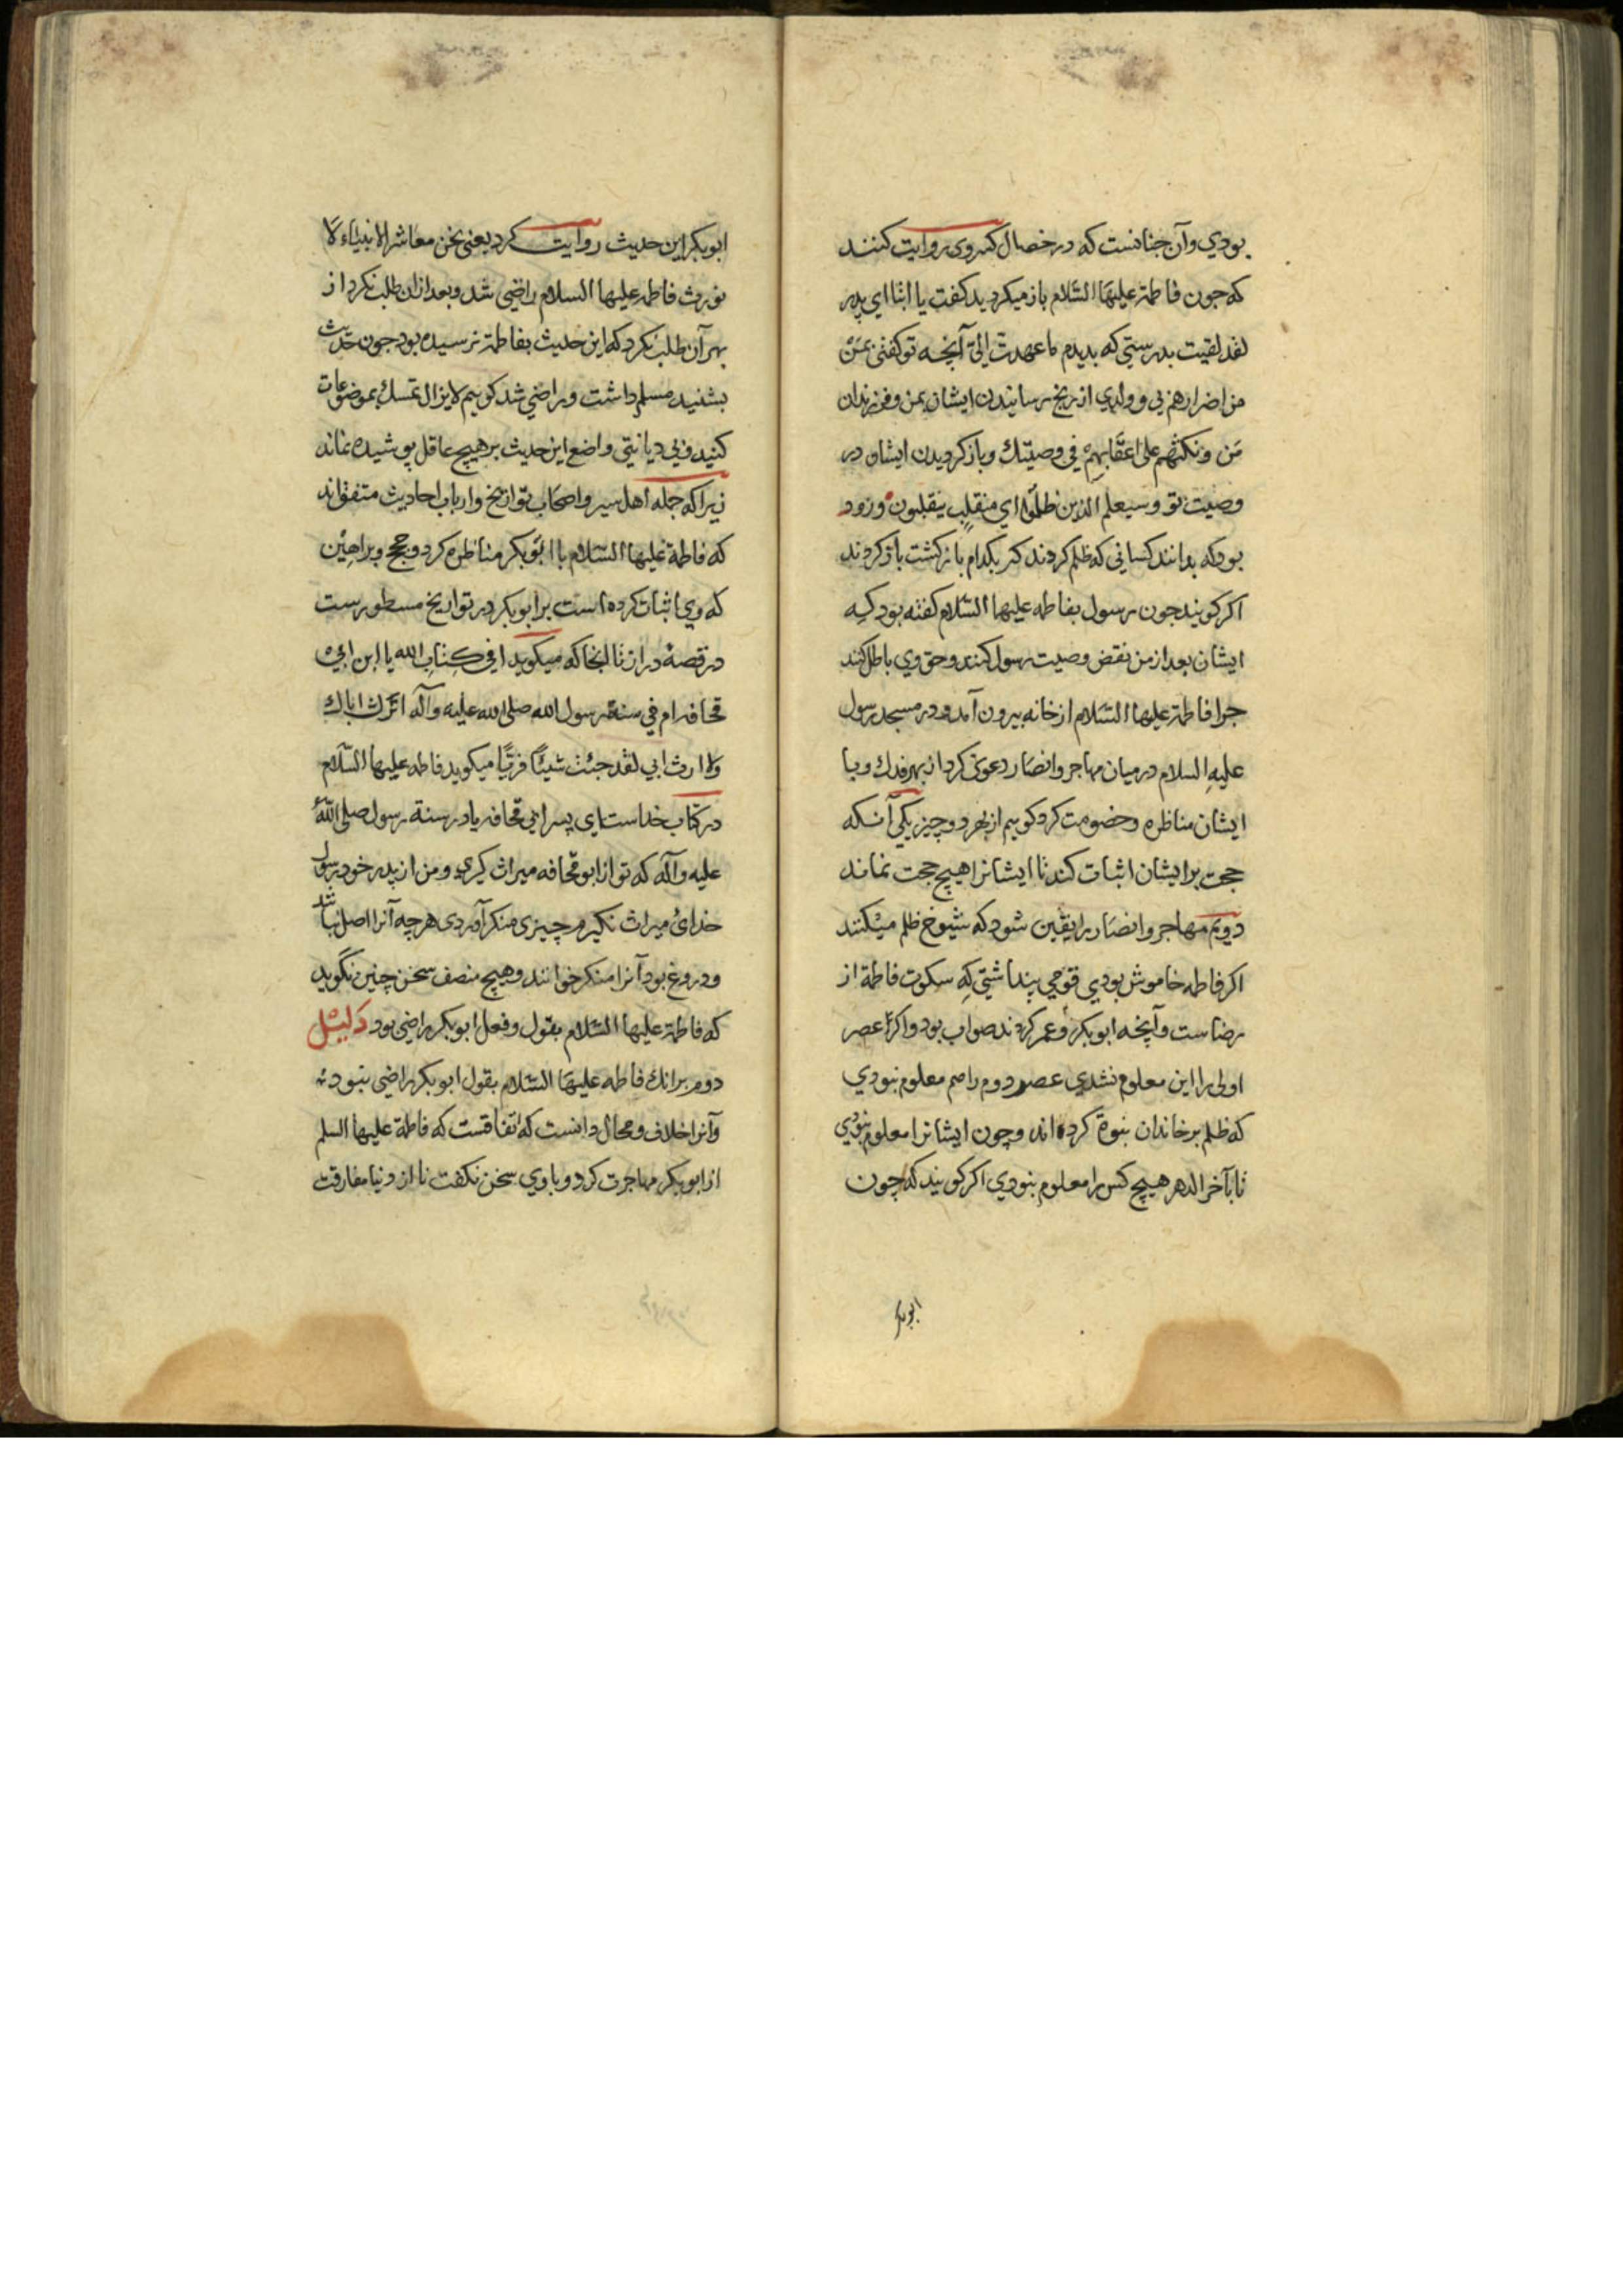 بودي وآن جنانست كه در خصال كسروى روايت كنند
كه جون فاطمة عليها السّلام باز ميكرديد كفت يا ابتا اى پدر
لقد لقيت بدرستي كه بديدم ما عهدت الىّ آنچه تو كفتى بمن
من اضرارهم بى وولدي از رنج رسانيدن ايشان بمن وفرزندان
من ونكثهم على اعقابهم في وصيّتك وباز كرديدن ايشان در
وصيت تو وسيعلم الذين ظلموا اي منقلب ينقلبون وزود
بود كه بدانند كسانى كه ظلم كردند كه بكدام باز كشت باز كردند
اكر كويند جون رسول بفاطمه عليها السّلام كفته بود كه
ايشان بعد از من نقض وصيت رسول كنند وحق وي باطل كنند
جرا فاطمة عليها السّلام از خانه بيرون آمد ودر مسجد رسول
عليه السلام در ميان مهاجر وانصار دعوى كرد از بهر فدك وبا
ايشان مناظره وخصومت كرد كويم از بهر دو چيز يكى آنكه
حجت بر ايشان اثبات كند تا ايشانرا هيچ حجت نماند
دويم مهاجر وانصار را يقين شود كه شيوخ ظلم ميكنند
اكر فاطمه خاموش بودي قومي پنداشتى كه سكوت فاطمة از
رضاست وآنچه ابوبكر وعمر كردند صواب بود واكر عصر
اولى را اين معلوم نشدي عصر دوم را هم معلوم نبودي
كه ظلم بر خاندان نبوة كرده اند وچون ايشانرا معلوم نبودي
تا بآخر الدهر هيچ كس را معلوم نبودي اكر كويند كه چون
ابوبكر
ابوبكر اين حديث روايت كرد يعنى نحن معاشر الانبياء لا
نورث فاطمه عليها السلام راضى شد وبعد از ان طلب نكرد از
بهر آن طلب نكرد كه اين حديث بفاطمة نرسيده بود جون حديث
بشنيد مسلم داشت وراضي شد كويم لايزال تمسك بموضوعات
كنيد وبى ديانتى واضع اين حديث بر هيچ عاقل پوشيده نماند
زيرا كه جمله اهل سير واصحاب تواريخ وارباب احاديث متفق اند
كه فاطمة عليها السّلام با ابوبكر مناظره كرد وحجج وبراهين
كه وي اثبات كرده است بر ابوبكر در تواريخ مسطورست
در قصهٔ دراز تا انجا كه ميكويد افي كتاب الله يا ابن ابي
قحافه ام في سنة رسول الله صلى الله عليه وآله ان ترث اباك
ولا ارث ابي لقد جئت شيئًا فريًّا ميكويد فاطمه عليها السّلام
در كتاب خداست اى پسر ابى قحافه يا در سنة رسول صلى الله
عليه وآله كه تو از ابو قحافه ميراث كيرى ومن از پدر خود رسول
خداى ميراث نكيرم چيزى منكر آوردى هرچه آنرا اصل نباشد
ودروغ بود آنرا منكر خوانند وهيچ منصف سخن چنين نگويد
كه فاطمة عليها السّلام بقول وفعل ابوبكر راضى بود دليل
دوم بر انك فاطمه عليها السّلام بقول ابوبكر راضى نبود
وآنرا خلاف ومحال دانست كه اتفاقست كه فاطمة عليها السلم
از ابوبكر مهاجرت كرد وباوي سخن نكفت تا از دنيا مفارقت